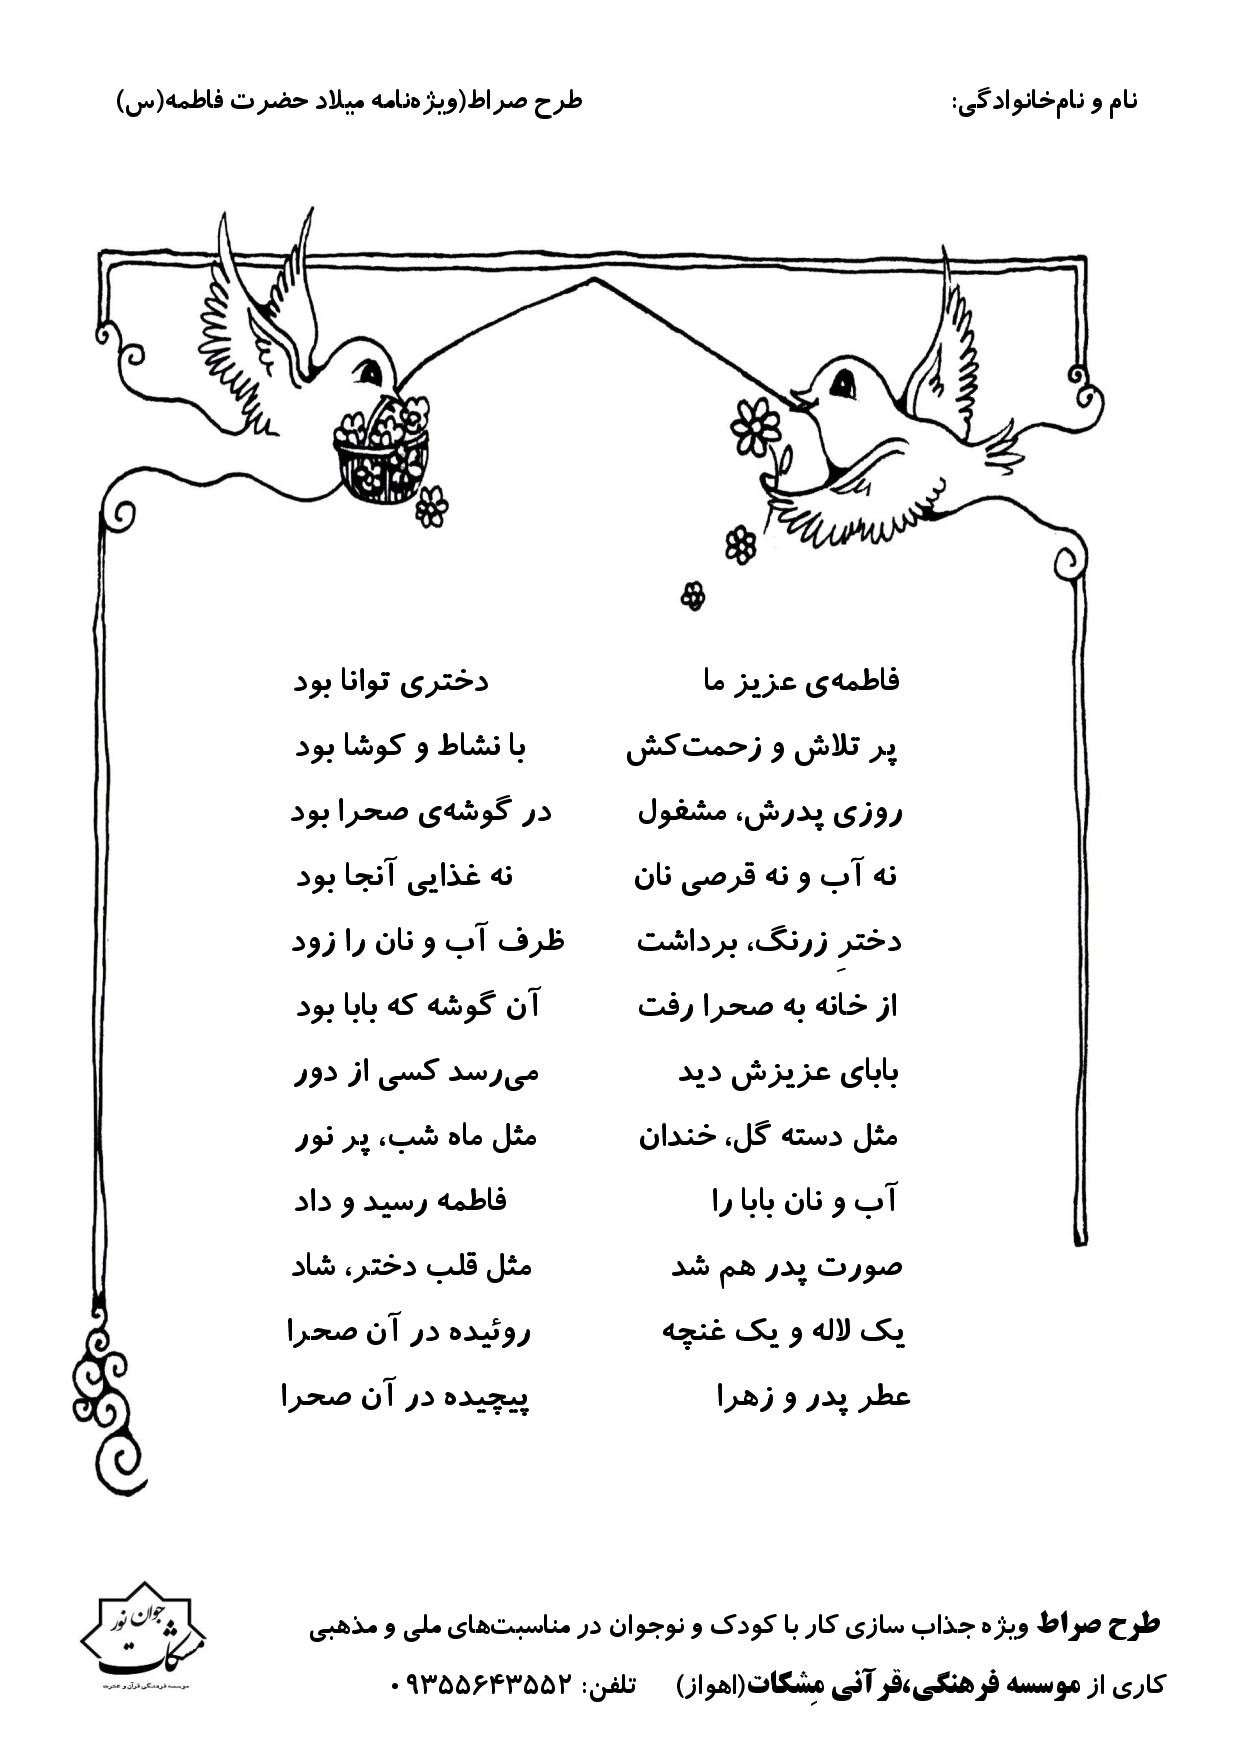 نام و نام‌خانوادگی: طرح صراط(ویژه‌نامه میلاد حضرت فاطمه(س)
فاطمه‌ی عزیز ما دختری توانا بود
پر تلاش و زحمت‌کش با نشاط و کوشا بود
روزی پدرش، مشغول در گوشه‌ی صحرا بود
نه آب و نه قرصی نان نه غذایی آنجا بود
دخترِ زرنگ، برداشت ظرف آب و نان را زود
از خانه به صحرا رفت آن گوشه که بابا بود
بابای عزیزش دید می‌رسد کسی از دور
مثل دسته گل، خندان مثل ماه شب، پر نور
آب و نان بابا را فاطمه رسید و داد
صورت پدر هم شد مثل قلب دختر، شاد
یک لاله و یک غنچه روئیده در آن صحرا
عطر پدر و زهرا پیچیده در آن صحرا
طرح صراط ویژه جذاب سازی کار با کودک و نوجوان در مناسبت‌های ملی و مذهبی
کاری از موسسه فرهنگی،قرآنی مِشکات(اهواز) تلفن: ۰۹۳۵۵۶۴۳۵۵۲
جوان نور
مشکات
موسسه فرهنگی قرآن و عترت